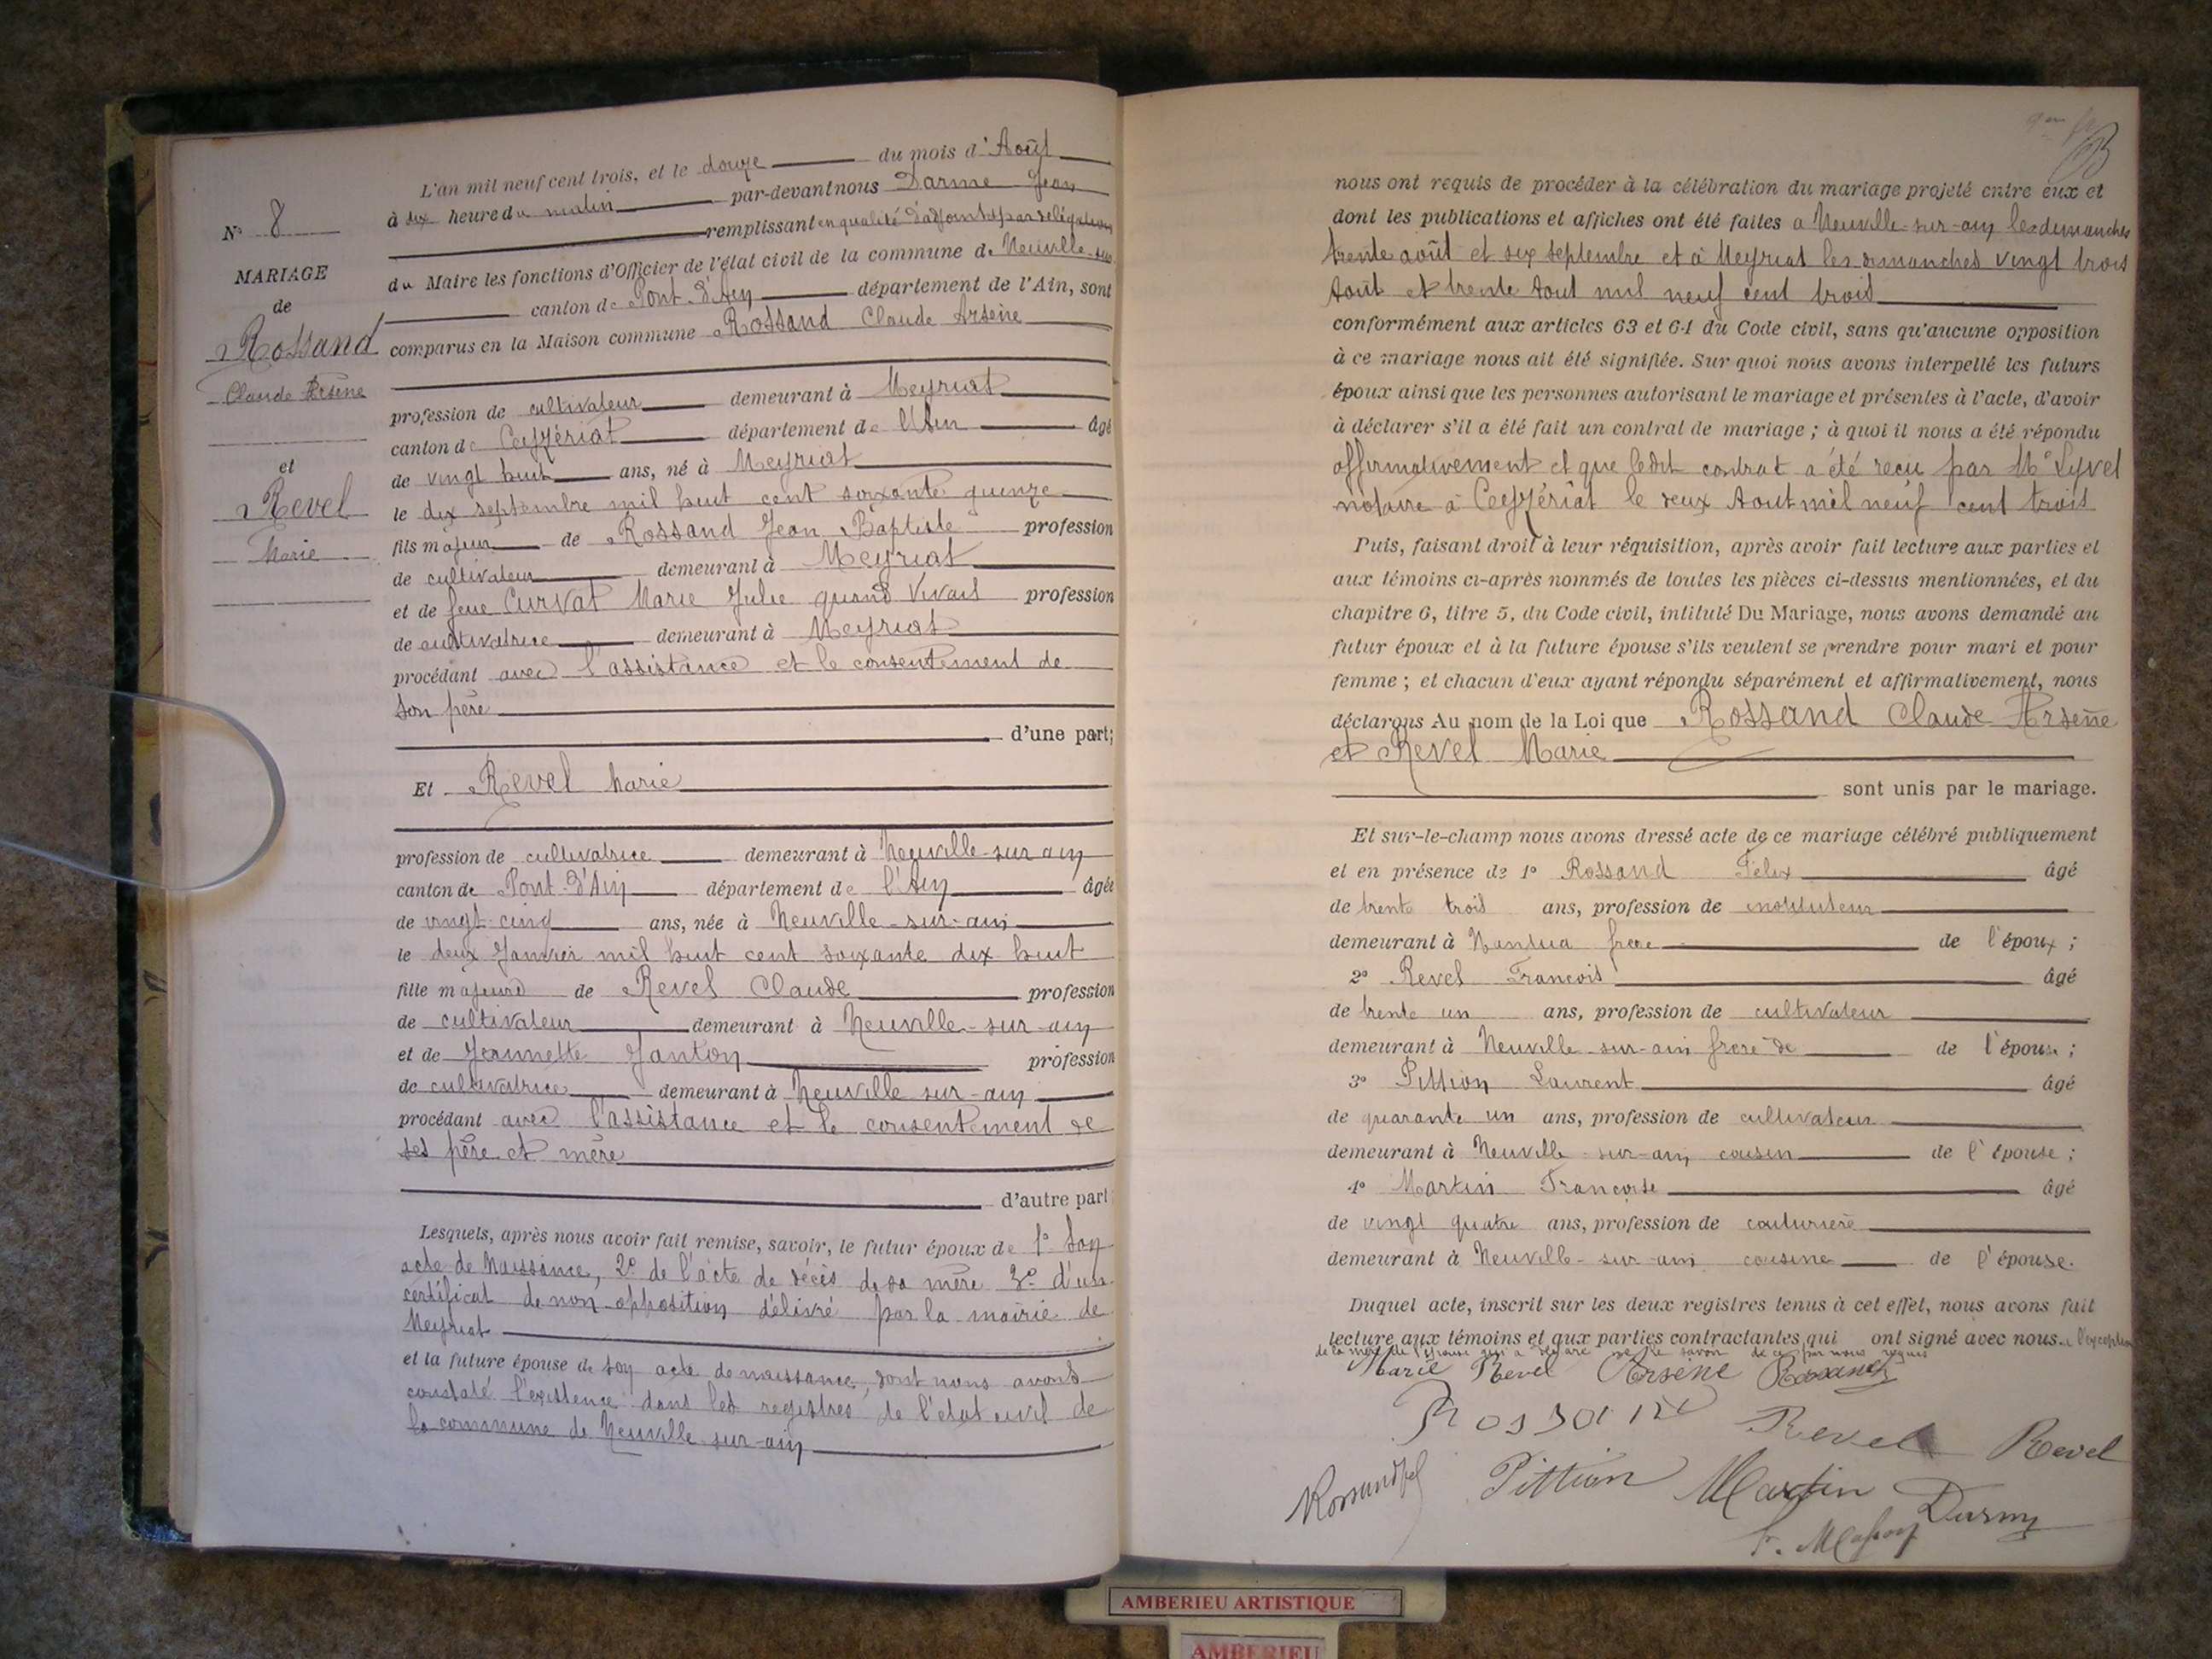 L'an mil neuf cent trois, et le douze du mois d'Août
à dix heure du matin par-devant nous Darme Jean
remplissant en qualité d'adjoint et par délégation
du Maire les fonctions d'Officier de l'état civil de la commune de Neuville-sur
canton de Pont-d'Ain département de l'Ain, sont
comparus en la Maison commune Rossand Claude Arsène
N° 8
MARIAGE
de
Rossand
Claude Arsène
et
Revel
Marie
profession de cultivateur demeurant à Meyriat
canton de Ceyzériat département de l'Ain âgé
de vingt huit ans, né à Meyriat
le dix septembre mil huit cent soixante quinze
fils majeur de Rossand Jean Baptiste profession
de cultivateur demeurant à Meyriat
et de feue Curvat Marie Julie quand vivait profession
de cultivatrice demeurant à Meyriat
procédant avec l'assistance et le consentement de
son père
d'une part;
Et Revel Marie
profession de cultivatrice demeurant à Neuville-sur-ain
canton de Pont-d'Ain département de l'Ain âgée
de vingt-cinq ans, née à Neuville-sur-ain
le deux Janvier mil huit cent soixante dix huit
fille majeure de Revel Claude profession
de cultivateur demeurant à Neuville-sur-ain
et de Jeannette Janton profession
de cultivatrice demeurant à Neuville sur-ain
procédant avec l'assistance et le consentement de
ses père et mère
d'autre part
Lesquels, après nous avoir fait remise, savoir, le futur époux de 1° Son
acte de Naissance, 2° de l'acte de décès de sa mère 3° d'un
certificat de non opposition délivré par la mairie de
Meyriat
et la future épouse de son acte de naissance, dont nous avons
constaté l'existence dans les registres de l'état civil de
la commune de Neuville sur-ain
nous ont requis de procéder à la célébration du mariage projeté entre eux et
dont les publications et affiches ont été faites à Neuville-sur-ain les dimanches
trente août et six septembre et à Meyriat les dimanches vingt trois
Août et trente Aout mil neuf cent trois
conformément aux articles 63 et 64 du Code civil, sans qu'aucune opposition
à ce mariage nous ait été signifiée. Sur quoi nous avons interpellé les futurs
époux ainsi que les personnes autorisant le mariage et présentes à l'acte, d'avoir
à déclarer s'il a été fait un contrat de mariage ; à quoi il nous a été répondu
affirmativement et que ledit contrat a été reçu par Me Lyvet
notaire à Ceyzériat le deux Aout mil neuf cent trois
Puis, faisant droit à leur réquisition, après avoir fait lecture aux parties et
aux témoins ci-après nommés de toutes les pièces ci-dessus mentionnées, et du
chapitre 6, titre 5, du Code civil, intitulé Du Mariage, nous avons demandé au
futur époux et à la future épouse s'ils veulent se prendre pour mari et pour
femme ; et chacun d'eux ayant répondu séparément et affirmativement, nous
déclarons Au nom de la Loi que Rossand Claude Arsène
et Revel Marie
sont unis par le mariage.
Et sur-le-champ nous avons dressé acte de ce mariage célébré publiquement
et en présence de 1° Rossand Félix âgé
de trente trois ans, profession de instituteur
demeurant à Nantua frère de l'époux ;
2° Revel François âgé
de trente un ans, profession de cultivateur
demeurant à Neuville-sur-ain frère de de l'épouse ;
3° Pittion Laurent âgé
de quarante un ans, profession de cultivateur
demeurant à Neuville-sur-ain, cousin de l'épouse ;
4° Martin Françoise âgé
de vingt quatre ans, profession de couturière
demeurant à Neuville-sur-ain cousine de l'épouse.
Duquel acte, inscrit sur les deux registres tenus à cet effet, nous avons fait
lecture aux témoins et aux parties contractantes qui ont signé avec nous à l'exception
de la mère de l'épouse qui a déclaré ne le savoir de ce par nous requis
Marie Revel Arsène Rossand
Rossand Revel Revel
Pittion Martin Darme
AMBERIEU ARTISTIQUE
AMBERIEU